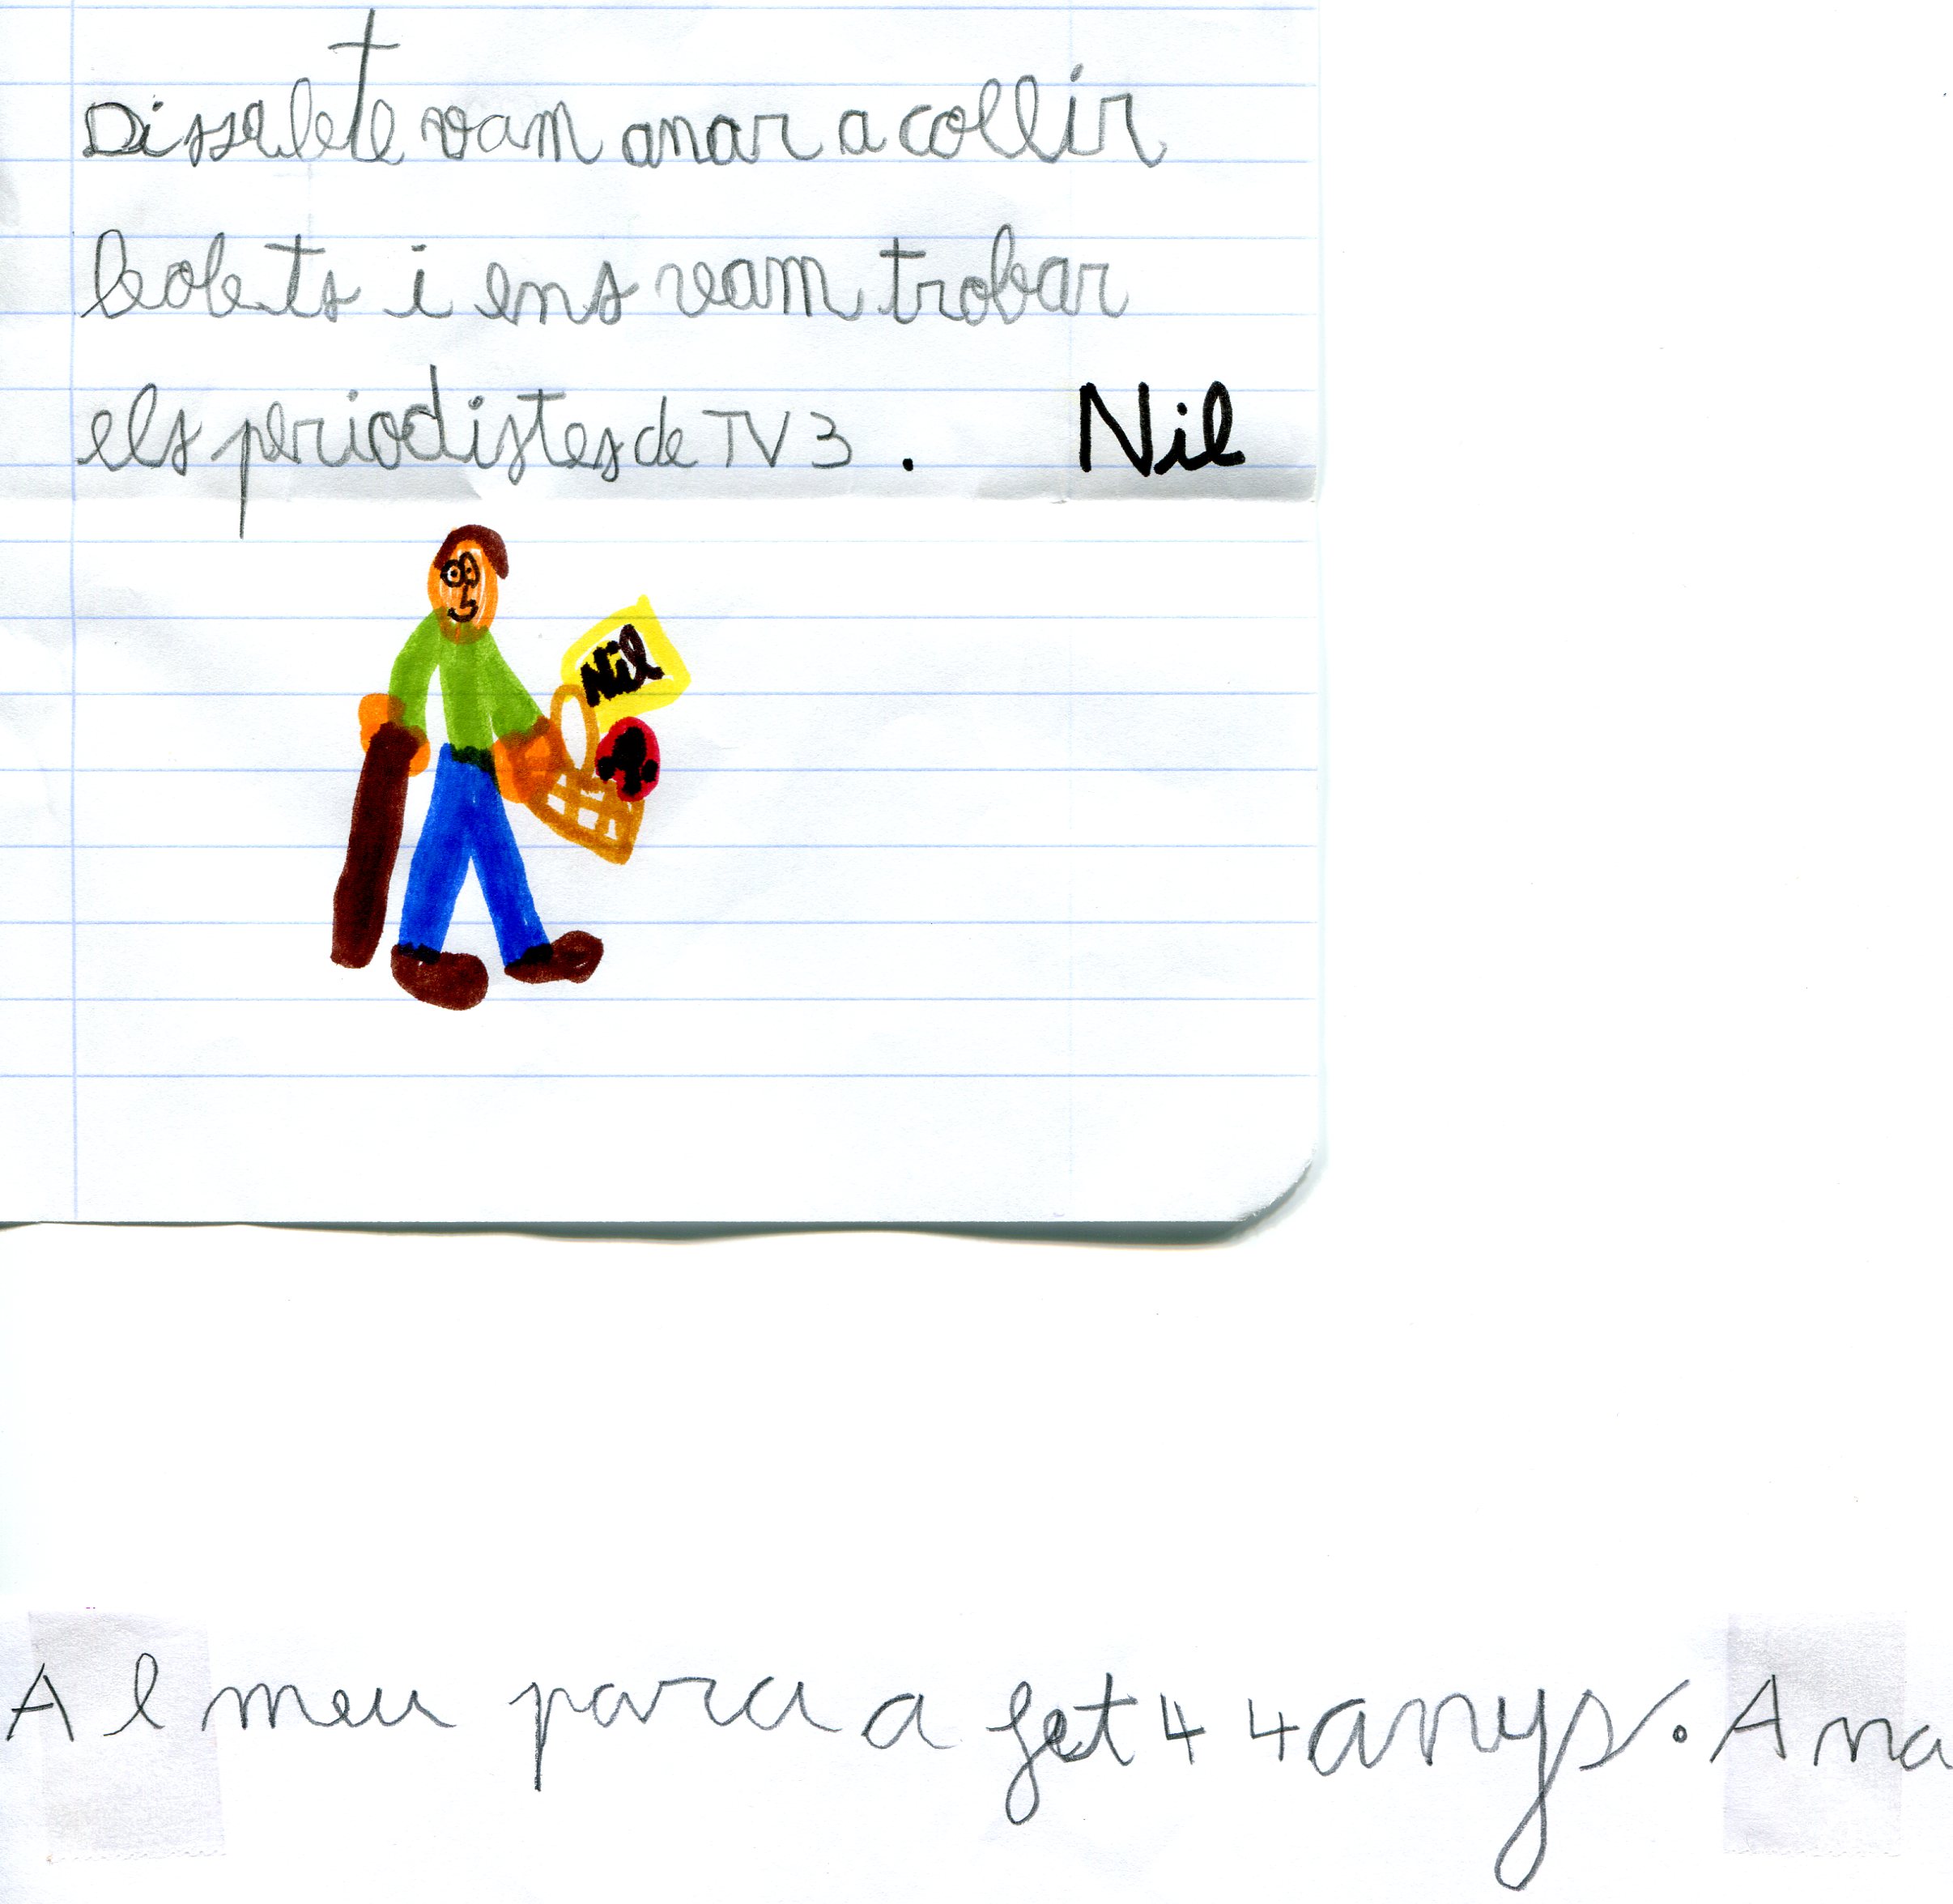 Dissabte vam anar a collir
bolets i ens vam trobar
els periodistes de TV3. Nil
Nil
Al meu para a fet 44 anys. Ana